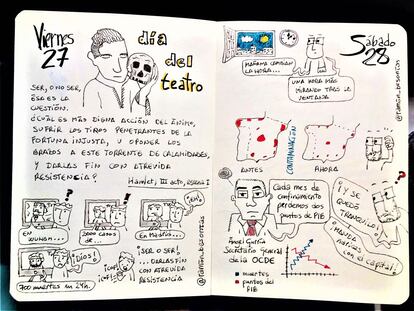 Viernes
27
día
del
teatro
SER, O NO SER,
ÉSA ES LA
CUESTIÓN.
¿CUÁL ES MÁS DIGNA ACCIÓN DEL ÁNIMO,
SUFRIR LOS TIROS PENETRANTES DE LA
FORTUNA INJUSTA, U OPONER LOS
BRAZOS A ESTE TORRENTE DE CALAMIDADES,
Y DARLAS FIN CON ATREVIDA
RESISTENCIA?
Hamlet, III acto, escena I
EN
WUHAN...
2000 CASOS
DE...
EN Madrid...
¡EH!
¡DIOS!
¡SER O SER!
...DARLAS FIN
CON ATREVIDA
RESISTENCIA
700 muertos en 24h.
MAÑANA CAMBIAN
LA HORA...
UNA HORA MÁS
MIRANDO TRAS LA
VENTANA
Sábado
28
CONTAMINACIÓN
ANTES
AHORA
Cada mes de
confinamiento
perdemos dos
puntos de PIB
Ángel Gurría
Secretario General
de la OCDE
muertes
puntos del
PIB
¡Y SE
QUEDÓ
TRANQUILO!
con el capital!